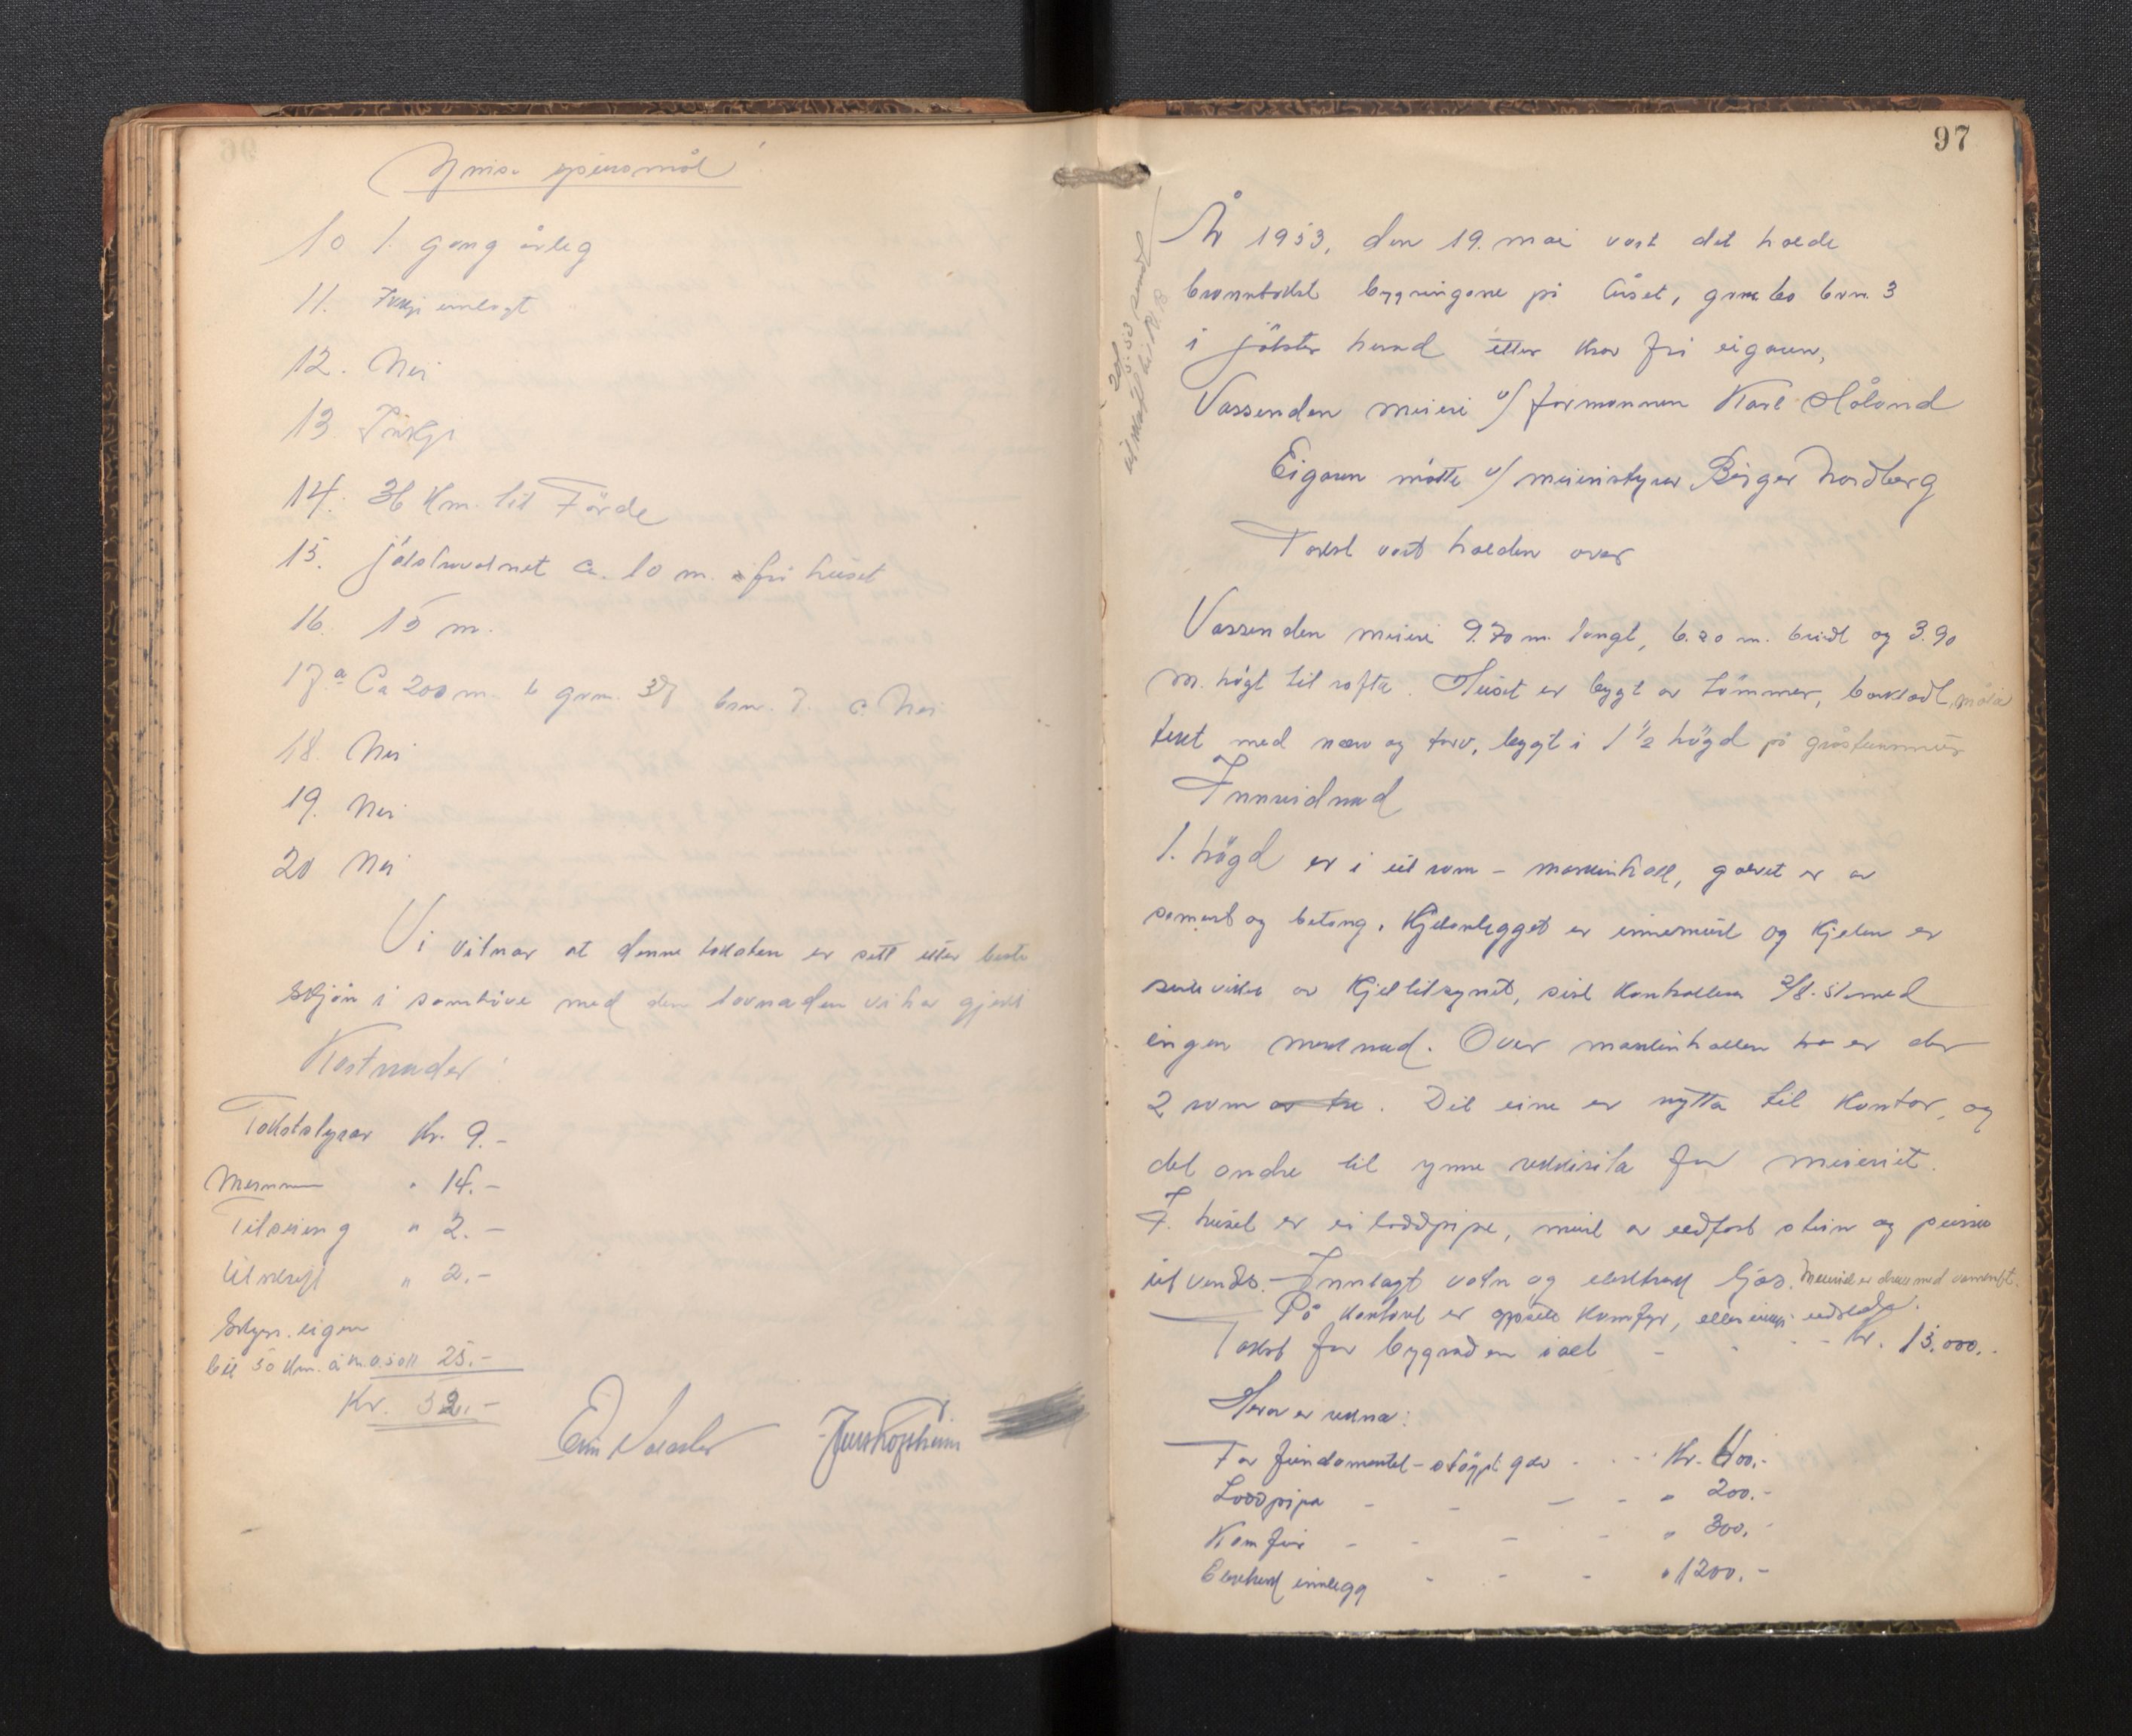 Ymse spursmål
10 1. gang årleg
11. Ikkje innlagt
12. Nei
13 Ikkje
14. 36 Km. til Förde
15. Jölstravatnet ca. 10 m. frå huset
16. 15 m.
17. a Ca 200 m. b gnr. 37 bnr. 7. c. Nei
18. Nei
19. Nei
20 Nei
Vi vitnar at denne taksten er sett etter beste
skjön i samhöve med den lovnaden vi har gjeve
Kostnader
Takststyrar Kr. 9.-
" 14.-
Tilseiing " 2.-
Utskrift " 2.-
Skyss. eigen
bil 50 Km. à kr. 0.50 25.-
Kr. 52.-
97
År 1953, den 19. mai vart det halde
branntakst bygningane på Åset, gnr. 60 bnr. 3
i Jölster herad etter krav frå eigaren,
Vassenden meieri v/ formannen Karl Håland
Eigaren mötte v/ meieristyrar Birger Nordberg
Takst vart halden over
Vassenden meieri 9.70 m. langt, 6.20 m. breidt og 3.90
m. högt til rafta. Huset er bygt av tömmer, bordkledt, måla
tekt med næver og torv, bygt i 1 1/2 högd på gråsteinsmur
Innreidnad
1. högd er i eit rom - maskinhall, golvet er av
sement og betong. Kjelanlegget er innemurt og kjelen er
av Kjeltilsynet, sist kontrollera 3/8-51 med
ingen merknad. Over maskinhallen er der
2 rom av tre. Det eine er nytta til kontor, og
det andre til ymse rekvisita for meieriet.
I huset er ei loddpipe, murt av eldfast stein og pussa
utvendes. Innlagt vatn og elektrisk ljos.
På kontoret er oppsett komfyr, elles ikkje eldstad.
Takst for bygnaden i alt - - - Kr. 15.000.-
Herav er rekna:
For fundamentet - stöypt golv - - - Kr. 400.-
Loddpipa - - - - " 200.-
Komfyr - - - - " 300.-
Elektrisk innlegg - - - " 1200.-